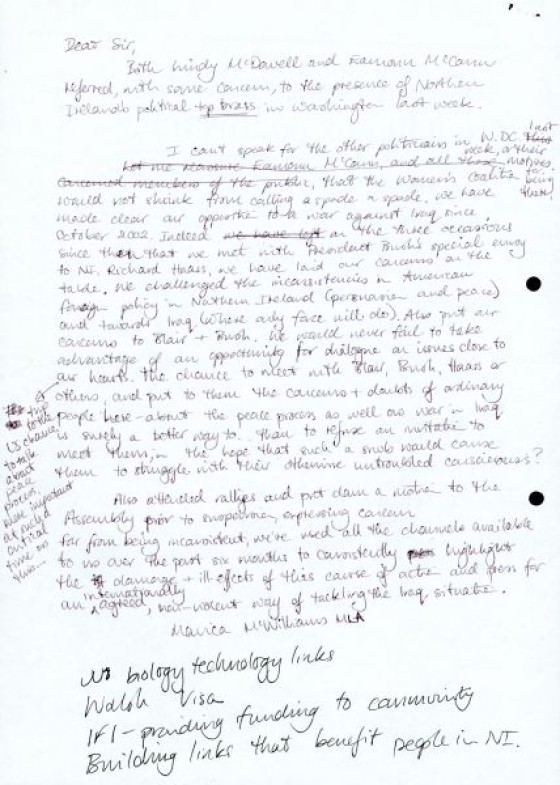 Dear Sir,
Both Lindy McDowell and Eamonn McCann
referred, with some concern, to the presence of Northern
Ireland's political top brass in Washington last week.
I can't speak for the other politicians in W. DC last
week, or their
Let me reassure Eamonn McCann, and all those motives
for
concerned members of the public, that the Women's Coalition being
would not shrink from calling a spade a spade. We have there,
made clear our opposition to a war against Iraq since
October 2002. Indeed we have left on the three occasions
since then that we met with President Bush's special envoy
to NI, Richard Haass, we have laid our concerns on the
table. We challenged the inconsistencies in American
foreign policy in Northern Ireland (persuasion and peace)
and towards Iraq (where only force will do). Also put our
concerns to Blair + Bush. We would never fail to take
advantage of an opportunity for dialogue on issues close to
our hearts. The chance to meet with Blair, Bush, Haass or
others, and put to them the concerns + doubts of ordinary
people here - about the peace process as well as war in Iraq
is surely a better way to.. than to refuse an invitation to
meet them, in the hope that such a snub would cause
them to struggle with their otherwise untroubled consciences?
US chance
to talk
about
peace
process,
more important
at such a
critical
time as
this...
Also attended rallies and put down a motion to the
Assembly prior to suspension, expressing concern
Far from being inconsistent, we've used all the channels available
to us over the past six months to consistently highlight
the damage + ill-effects of this course of action and press for
internationally
an agreed, non-violent way of tackling the Iraq situation.
Monica McWilliams MLA
biology technology links
Walsh Visa
IFI - providing funding to community
Building links that benefit people in NI.